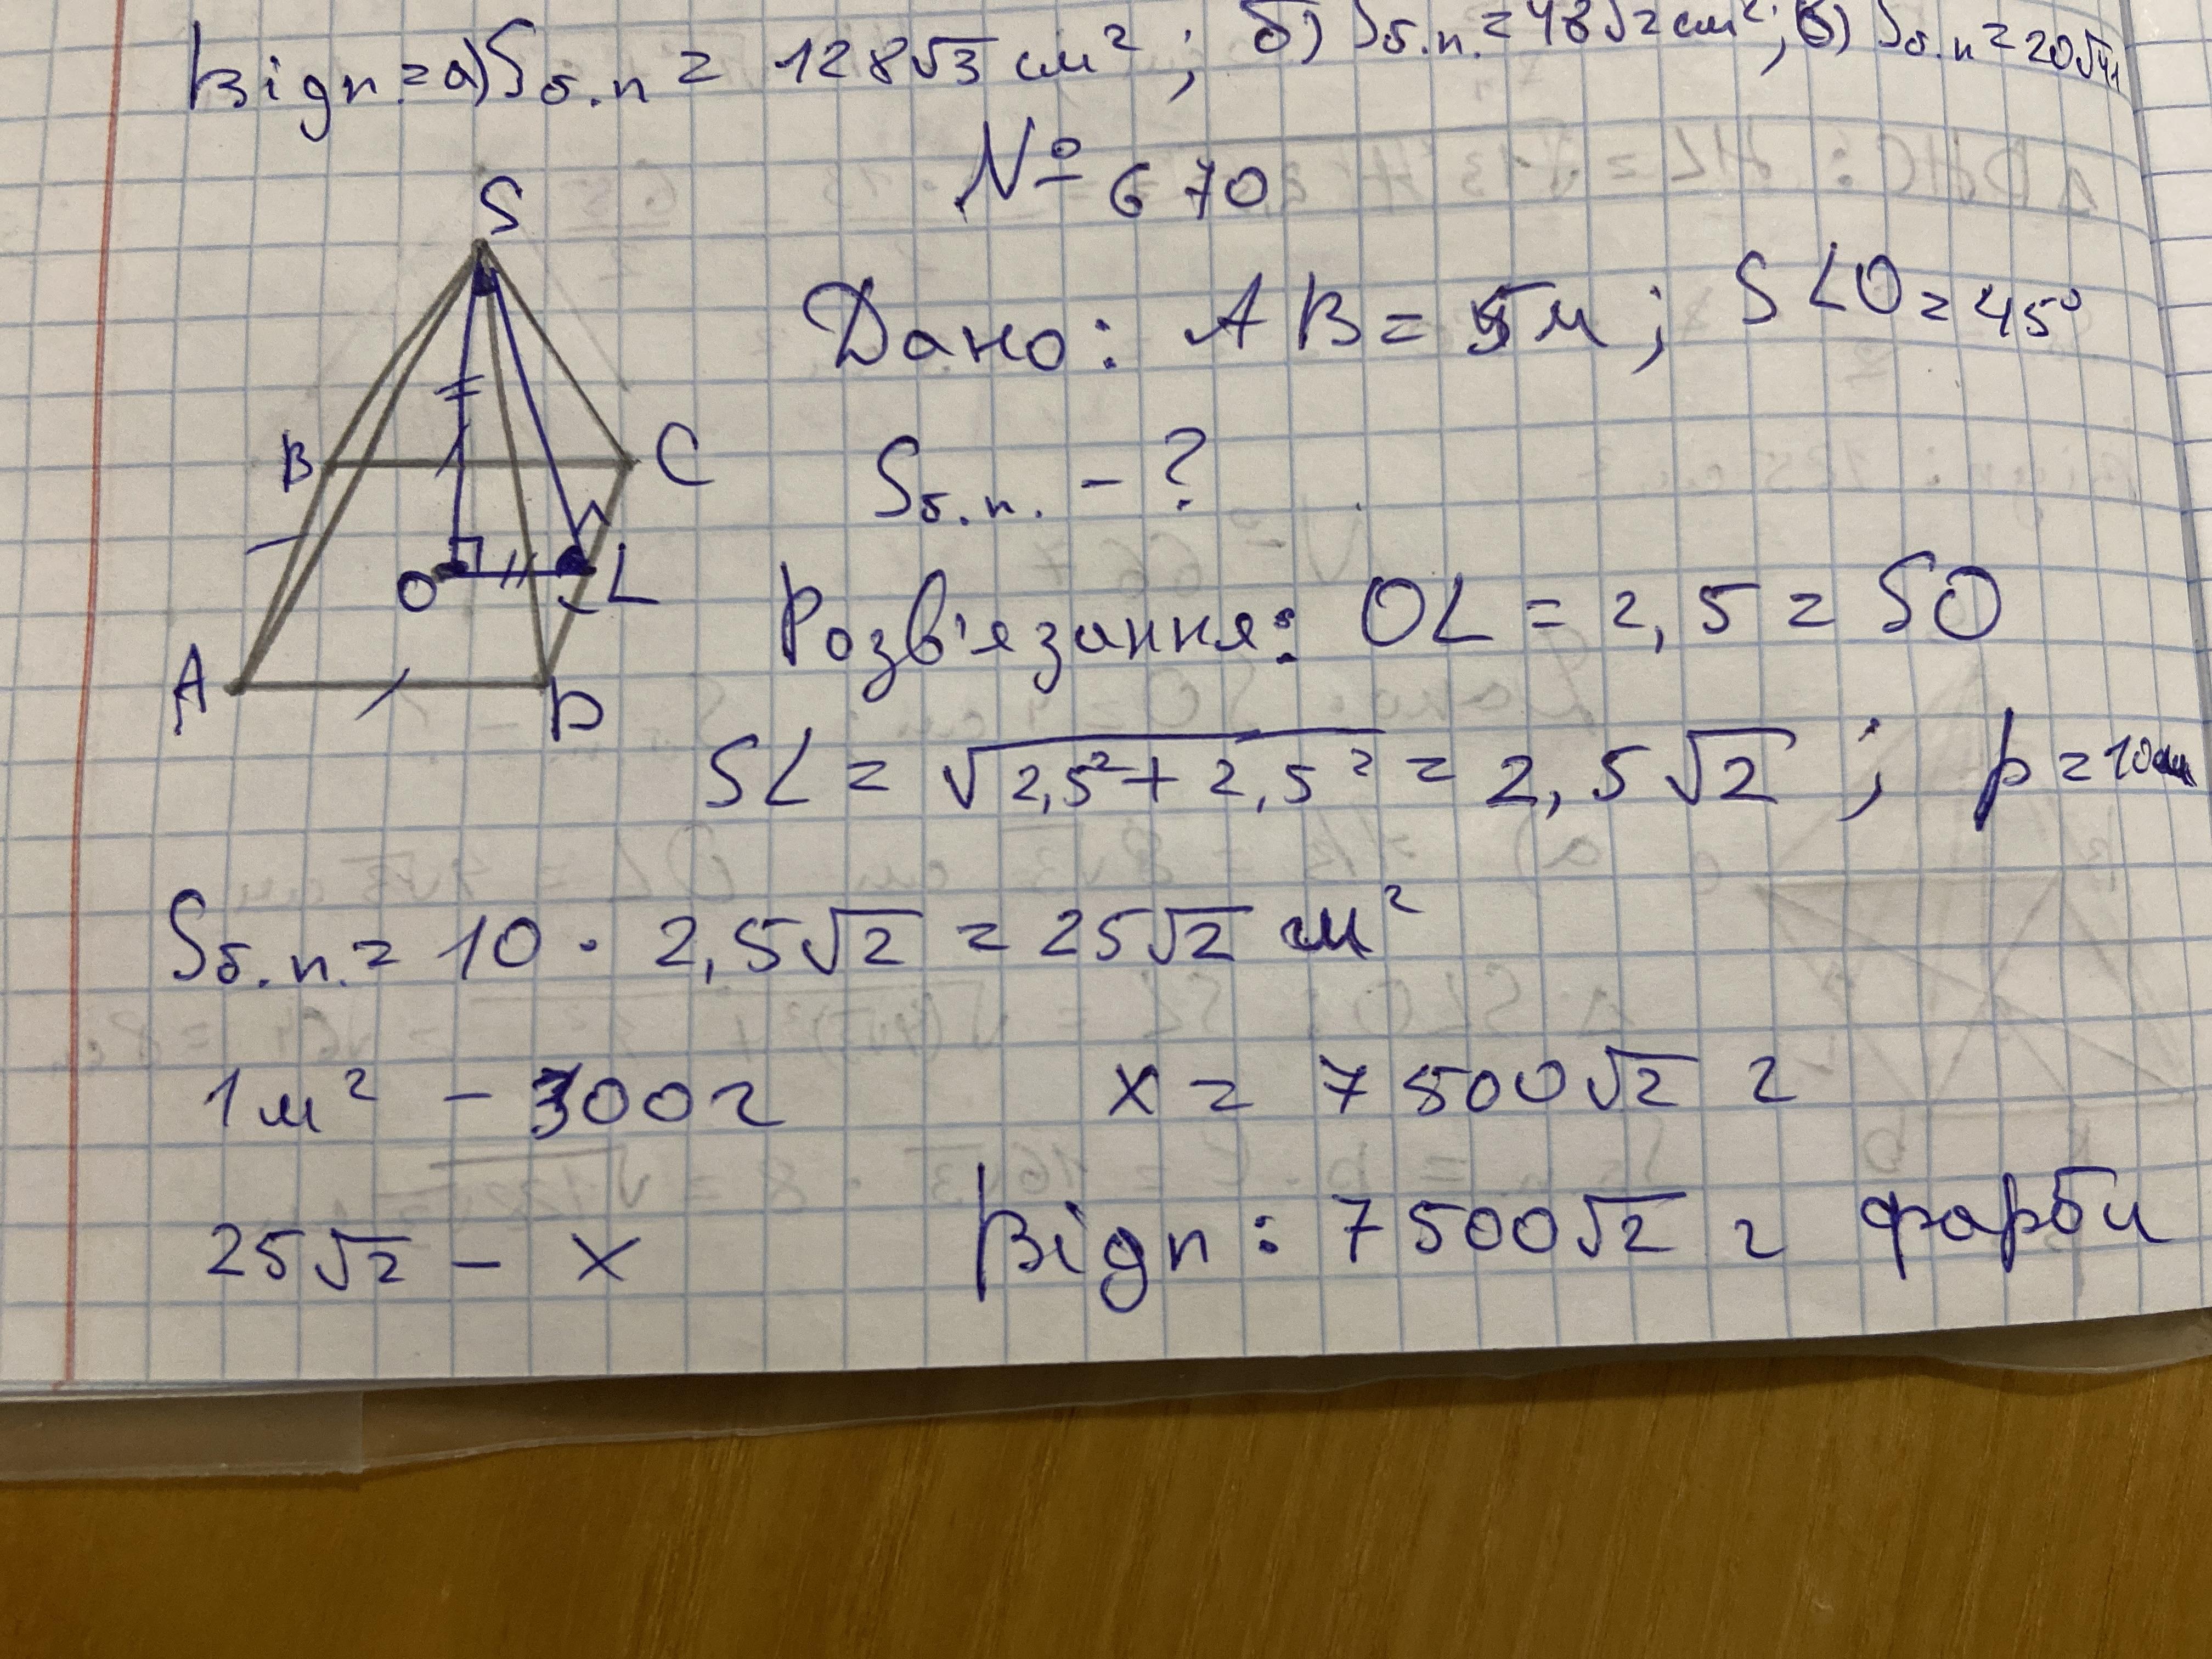 Відп: а) Sб.п = 128√3 см²; б) Sб.п. = 48√2 см²; в) Sб.п = 20√41
№ 670
S
Дано: AB = 5м; SLO = 45°
B C
Sб.п. - ?
O L
Розв'язання: OL = 2,5 = SO
A D
SL = √2,5² + 2,5² = 2,5√2; p = 10м
Sб.п. = 10 · 2,5√2 = 25√2 м²
1м² - 300г x = 7500√2 г
25√2 - x Відп: 7500√2 г фарби